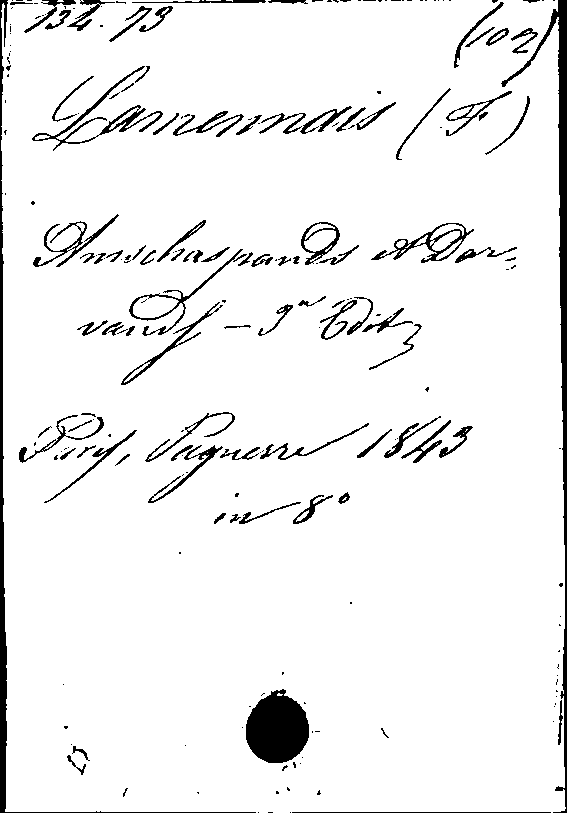 134. 73
(102)
Lamennais (F)
Amschaspands et Dar-
vands — 3e Edit
Paris, Pagnerre 1843
in 8°